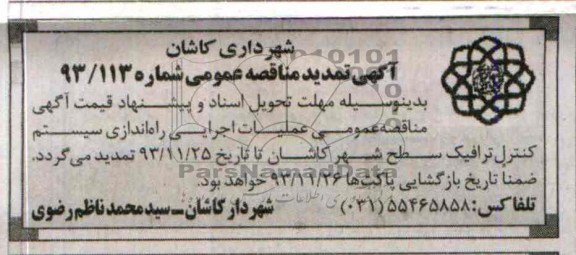 شهرداری کاشان
آگهی تمدید مناقصه عمومی شماره ۹۳/۱۱۳
بدینوسیله مهلت تحویل اسناد و پیشنهاد قیمت آگهی
مناقصه عمومی عملیات اجرایی راه‌اندازی سیستم
کنترل ترافیک سطح شهر کاشان تا تاریخ ۹۳/۱۱/۲۵ تمدید می‌گردد.
ضمنا تاریخ بازگشایی پاکت‌ها ۹۳/۱۱/۲۶ خواهد بود.
تلفاکس: ۵۵۴۶۵۸۵۸ (۰۳۱)
شهردار کاشان ــ سید محمد ناظم رضوی
ParsNamadData